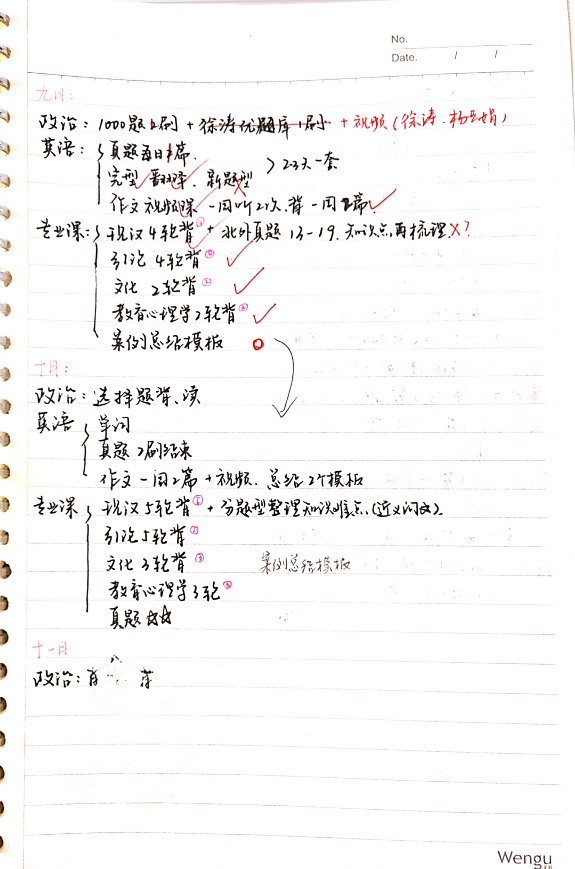 No.
Date. / /
九月:
政治: 1000题2刷 + 徐涛优题库1刷 + 视频 (徐涛. 杨亚娟)
英语: 真题每日1篇.
完型 翻译. 新题型 > 2-3天一套
作文视频课 一周听2次. 背一周2篇
专业课: 现汉4轮背① + 北外真题 13-19. 知识点再梳理. X?
引论 4轮背②
文化 2轮背
教育心理学2轮背
案例总结模板
十月:
政治: 选择题背、读
英语 单词
真题 2刷结束
作文一周2篇 + 视频. 总结2个模板
专业课 现汉5轮背① + 分题型整理知识难点 (近义词文)
引论5轮背②
文化3轮背③
案例总结模板
教育心理学3轮④
真题
十一月
政治: 肖
Wengu